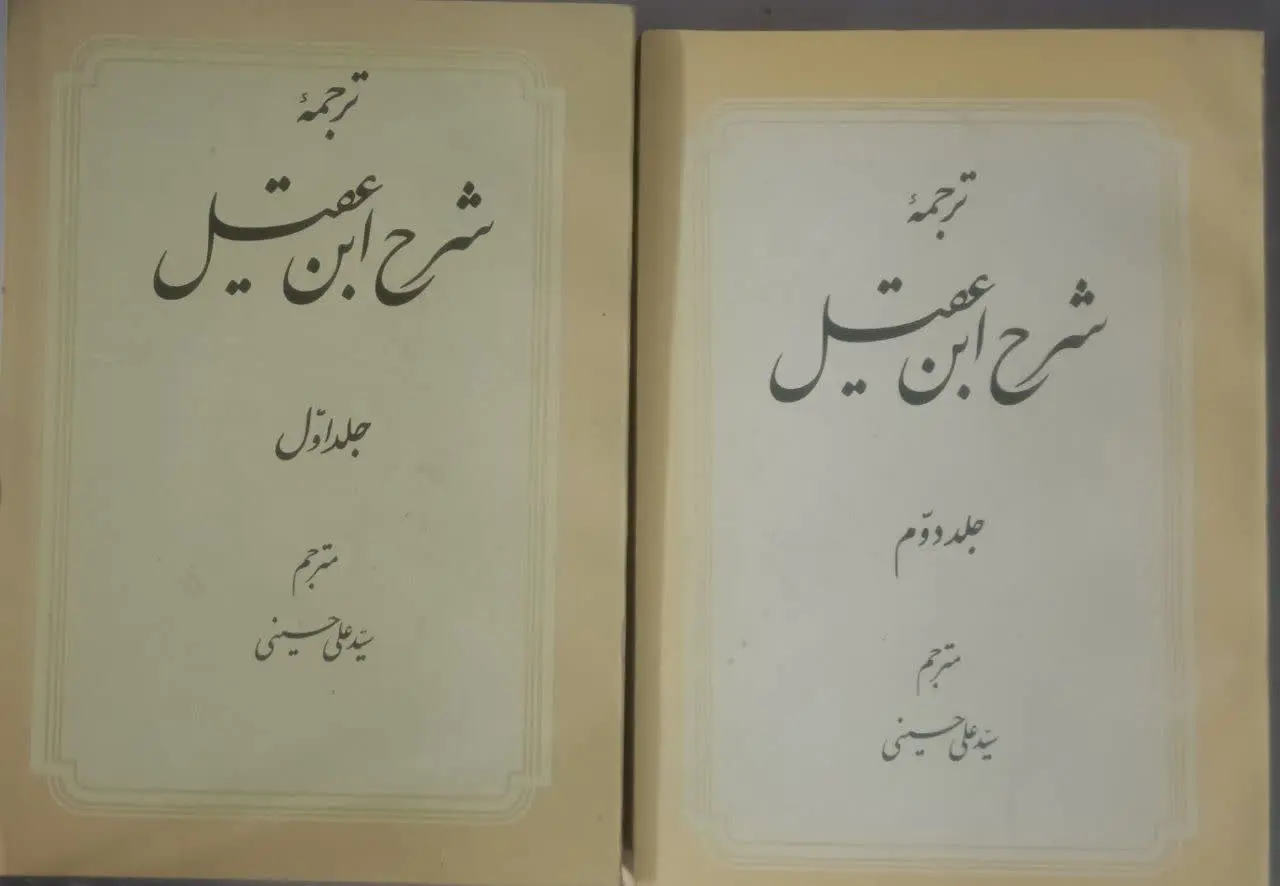 ترجمهٔ
شرح ابن عقیل
جلد اوّل
مترجم
سیّد علی حسینی
ترجمهٔ
شرح ابن عقیل
جلد دوّم
مترجم
سیّد علی حسینی